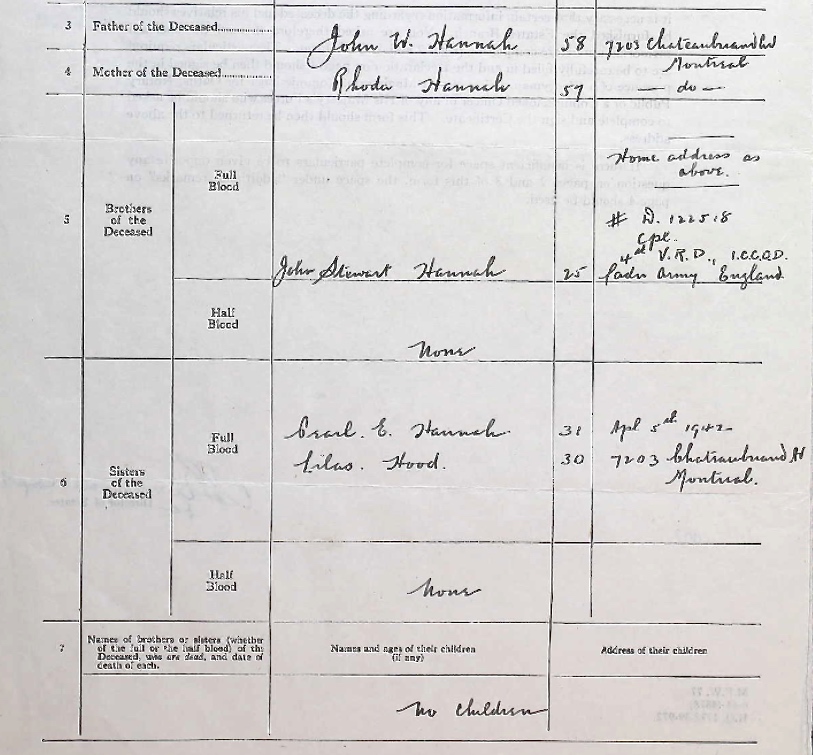 3 Father of the Deceased........ John W. Hannah 58 7203 Chateaubriand
Montreal
4 Mother of the Deceased........ Rhoda Hannah 57 — do —
Home address as
above.
Full
Blood
5 Brothers
of the
Deceased
# D. 122518
Cpl.
4th V.R.D., I.C.C.O.D.
John Stewart Hannah 25 Army England
Half
Blood
None
Pearl. E. Hannah 31 Apl 5th 1942
Full
Blood
Lilas. Hood. 30 7203 Chateaubriand
Montreal.
6 Sisters
of the
Deceased
Half
Blood
None
7 Names of brothers or sisters (whether
of the full or the half blood) of the
Deceased, who are dead, and date of
death of each.
Names and ages of their children
(if any)
Address of their children
No children